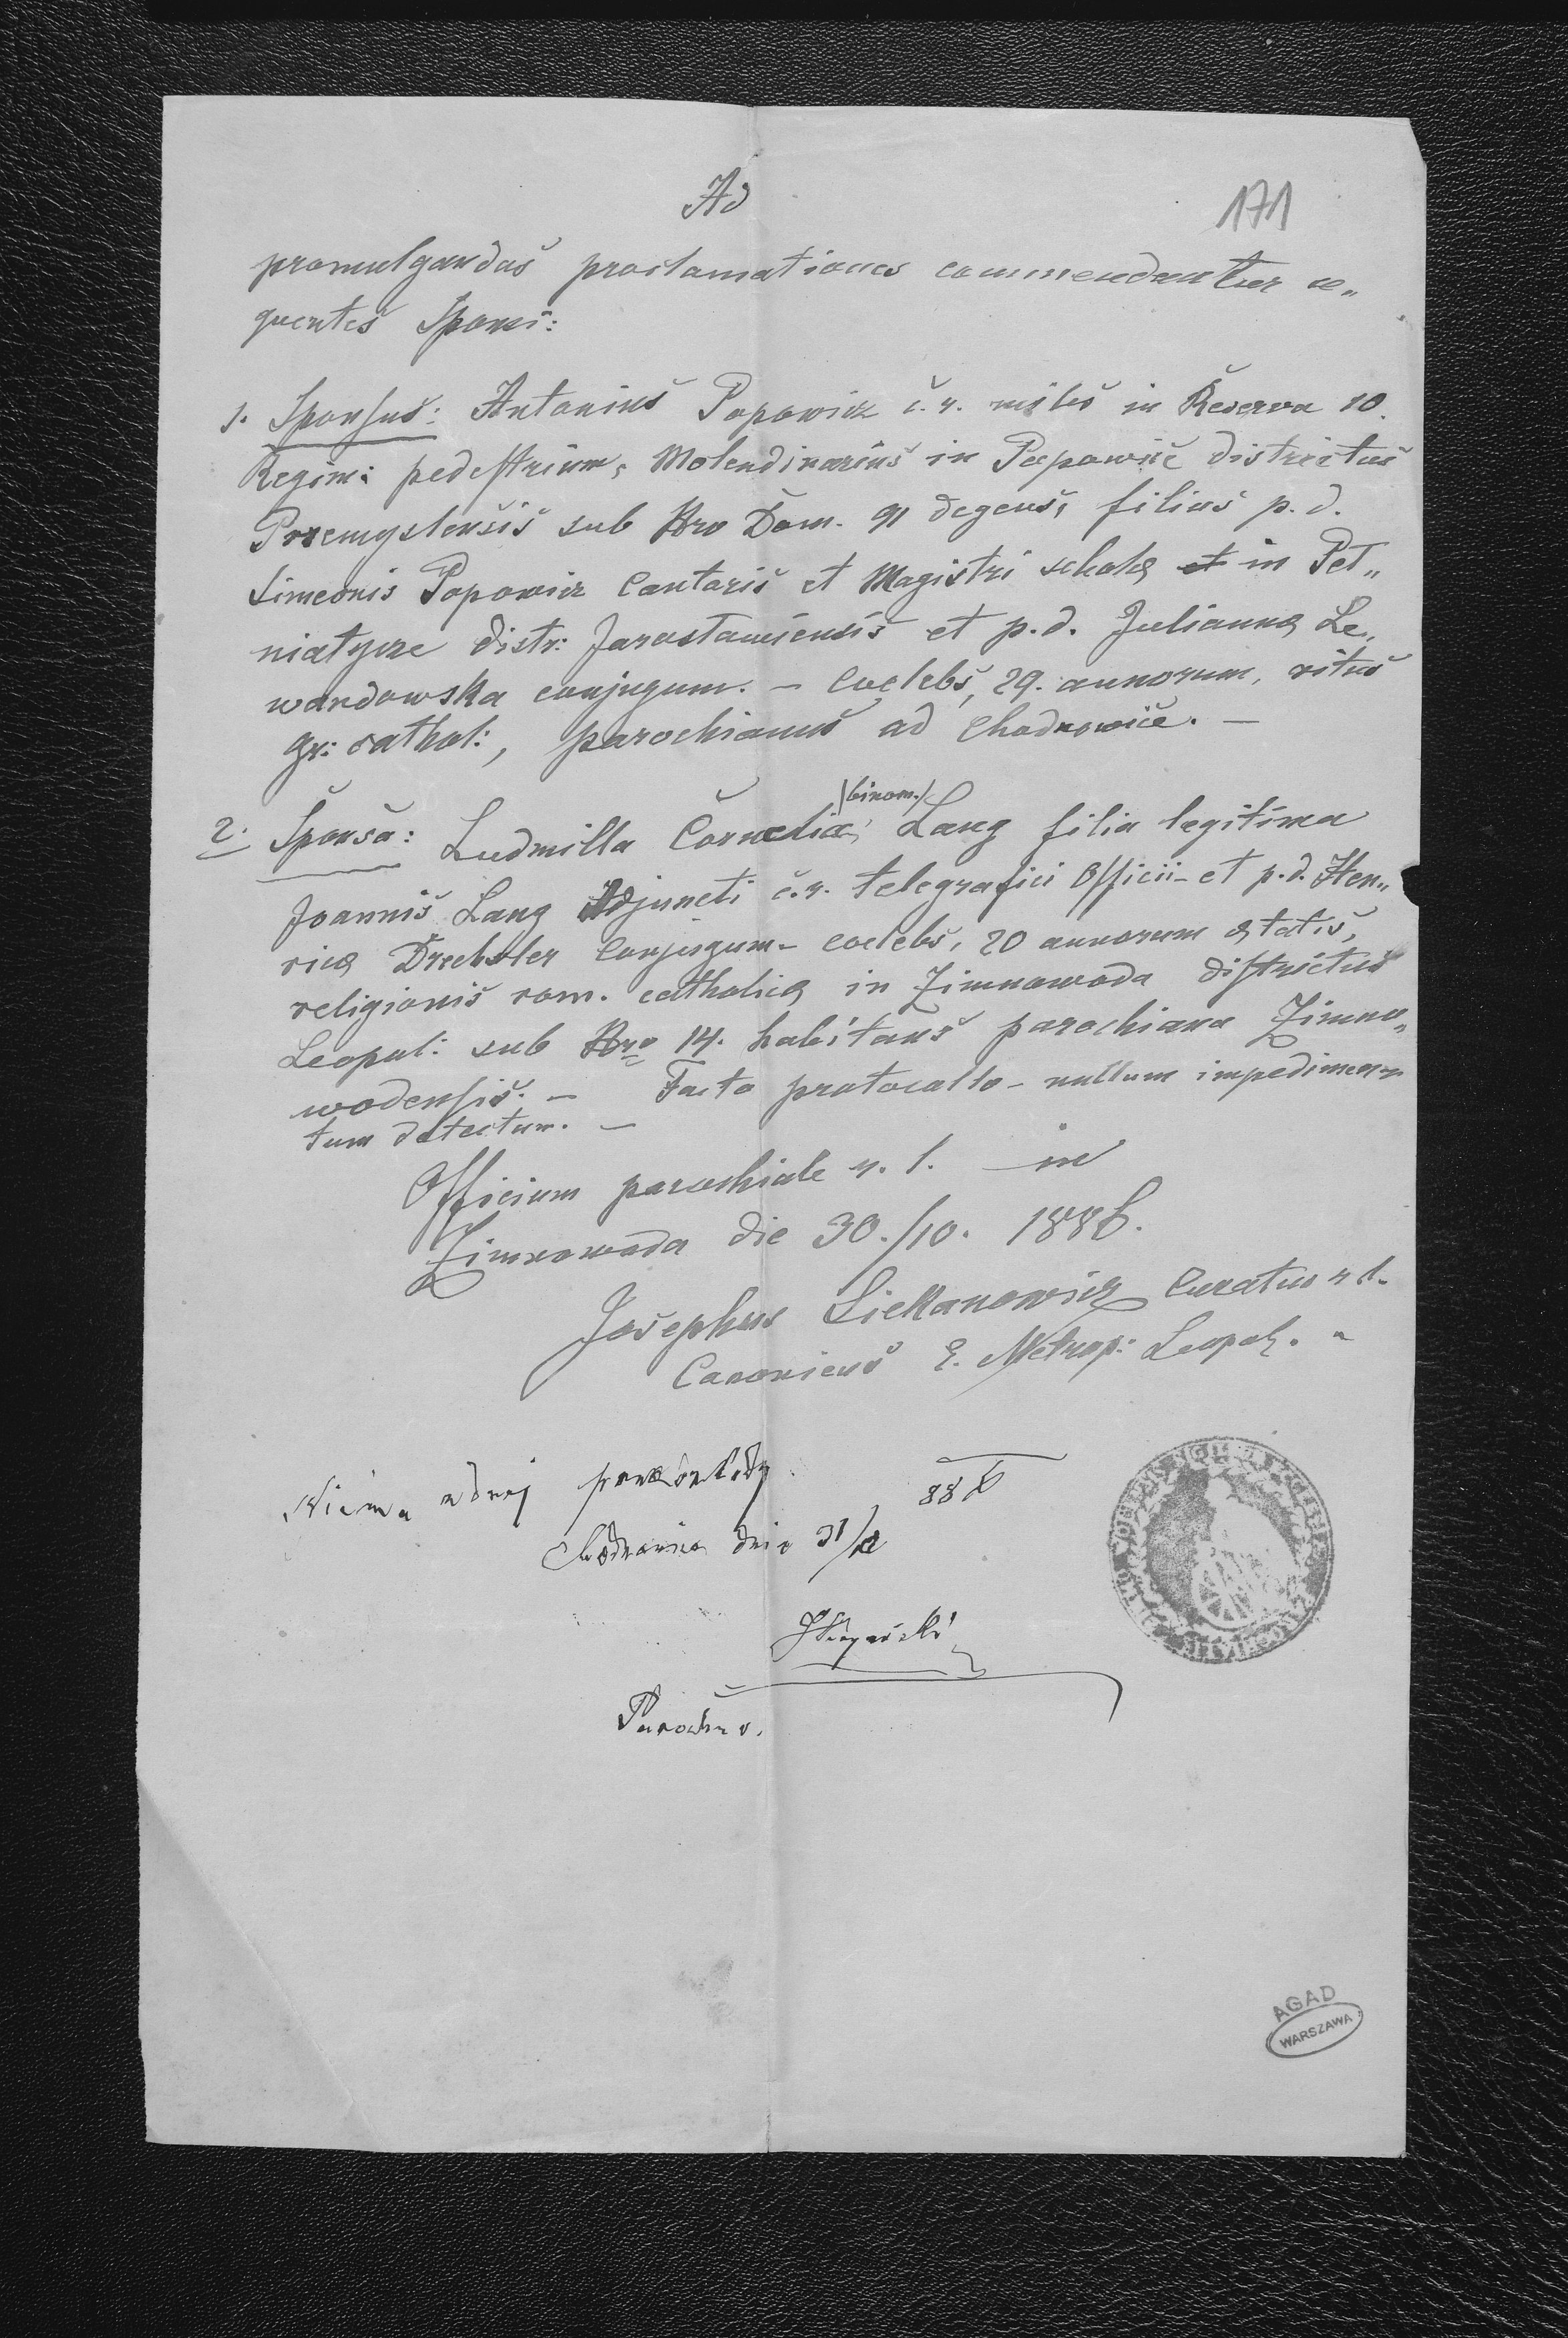 Ad
171
promulgandas proclamationes commendantur se„
quentes Sponsi:
1. Sponsus: Antonius Popowicz c. r. miles in Reserva 10.
Regim: pedestrium, Molendinarius in Popowice districtus
Przemyslensis sub Nro Dom. 91 degens, filius p. d.
Simeonis Popowicz Cantoris et Magistri scholæ et in Peł„
niatycze distr: Jaroslaviensis et p. d. Julianna Le„
wandowska conjugum. – Coelebs, 29. annorum, ritus
gr: cathol:, parochianus ad Chodnowice. –
2. Sponsa: Ludmilla Cornelia /binom./ Lang filia legitima
Joannis Lang Adjuncti c. r. telegrafici Officii – et p. d. Hen„
ricæ Drechsler Conjugum – coelebs, 20 annorum ætatis,
religionis rom. catholicæ in Zimnawoda districtus
Leopol: sub Nro 14. habitans parochiana Zimno„
wodensis. – Facto protocollo – nullum impedimen„
tum detectum. –
Officium parochiale r. l. in
Zimnawoda die 30./10. 1886.
Josephus Curatus r. l.
Canonicus E. Metrop: Leopol. –
Niema
Chodnowice dnia 31/X 88
Parochus.
AGAD
WARSZAWA